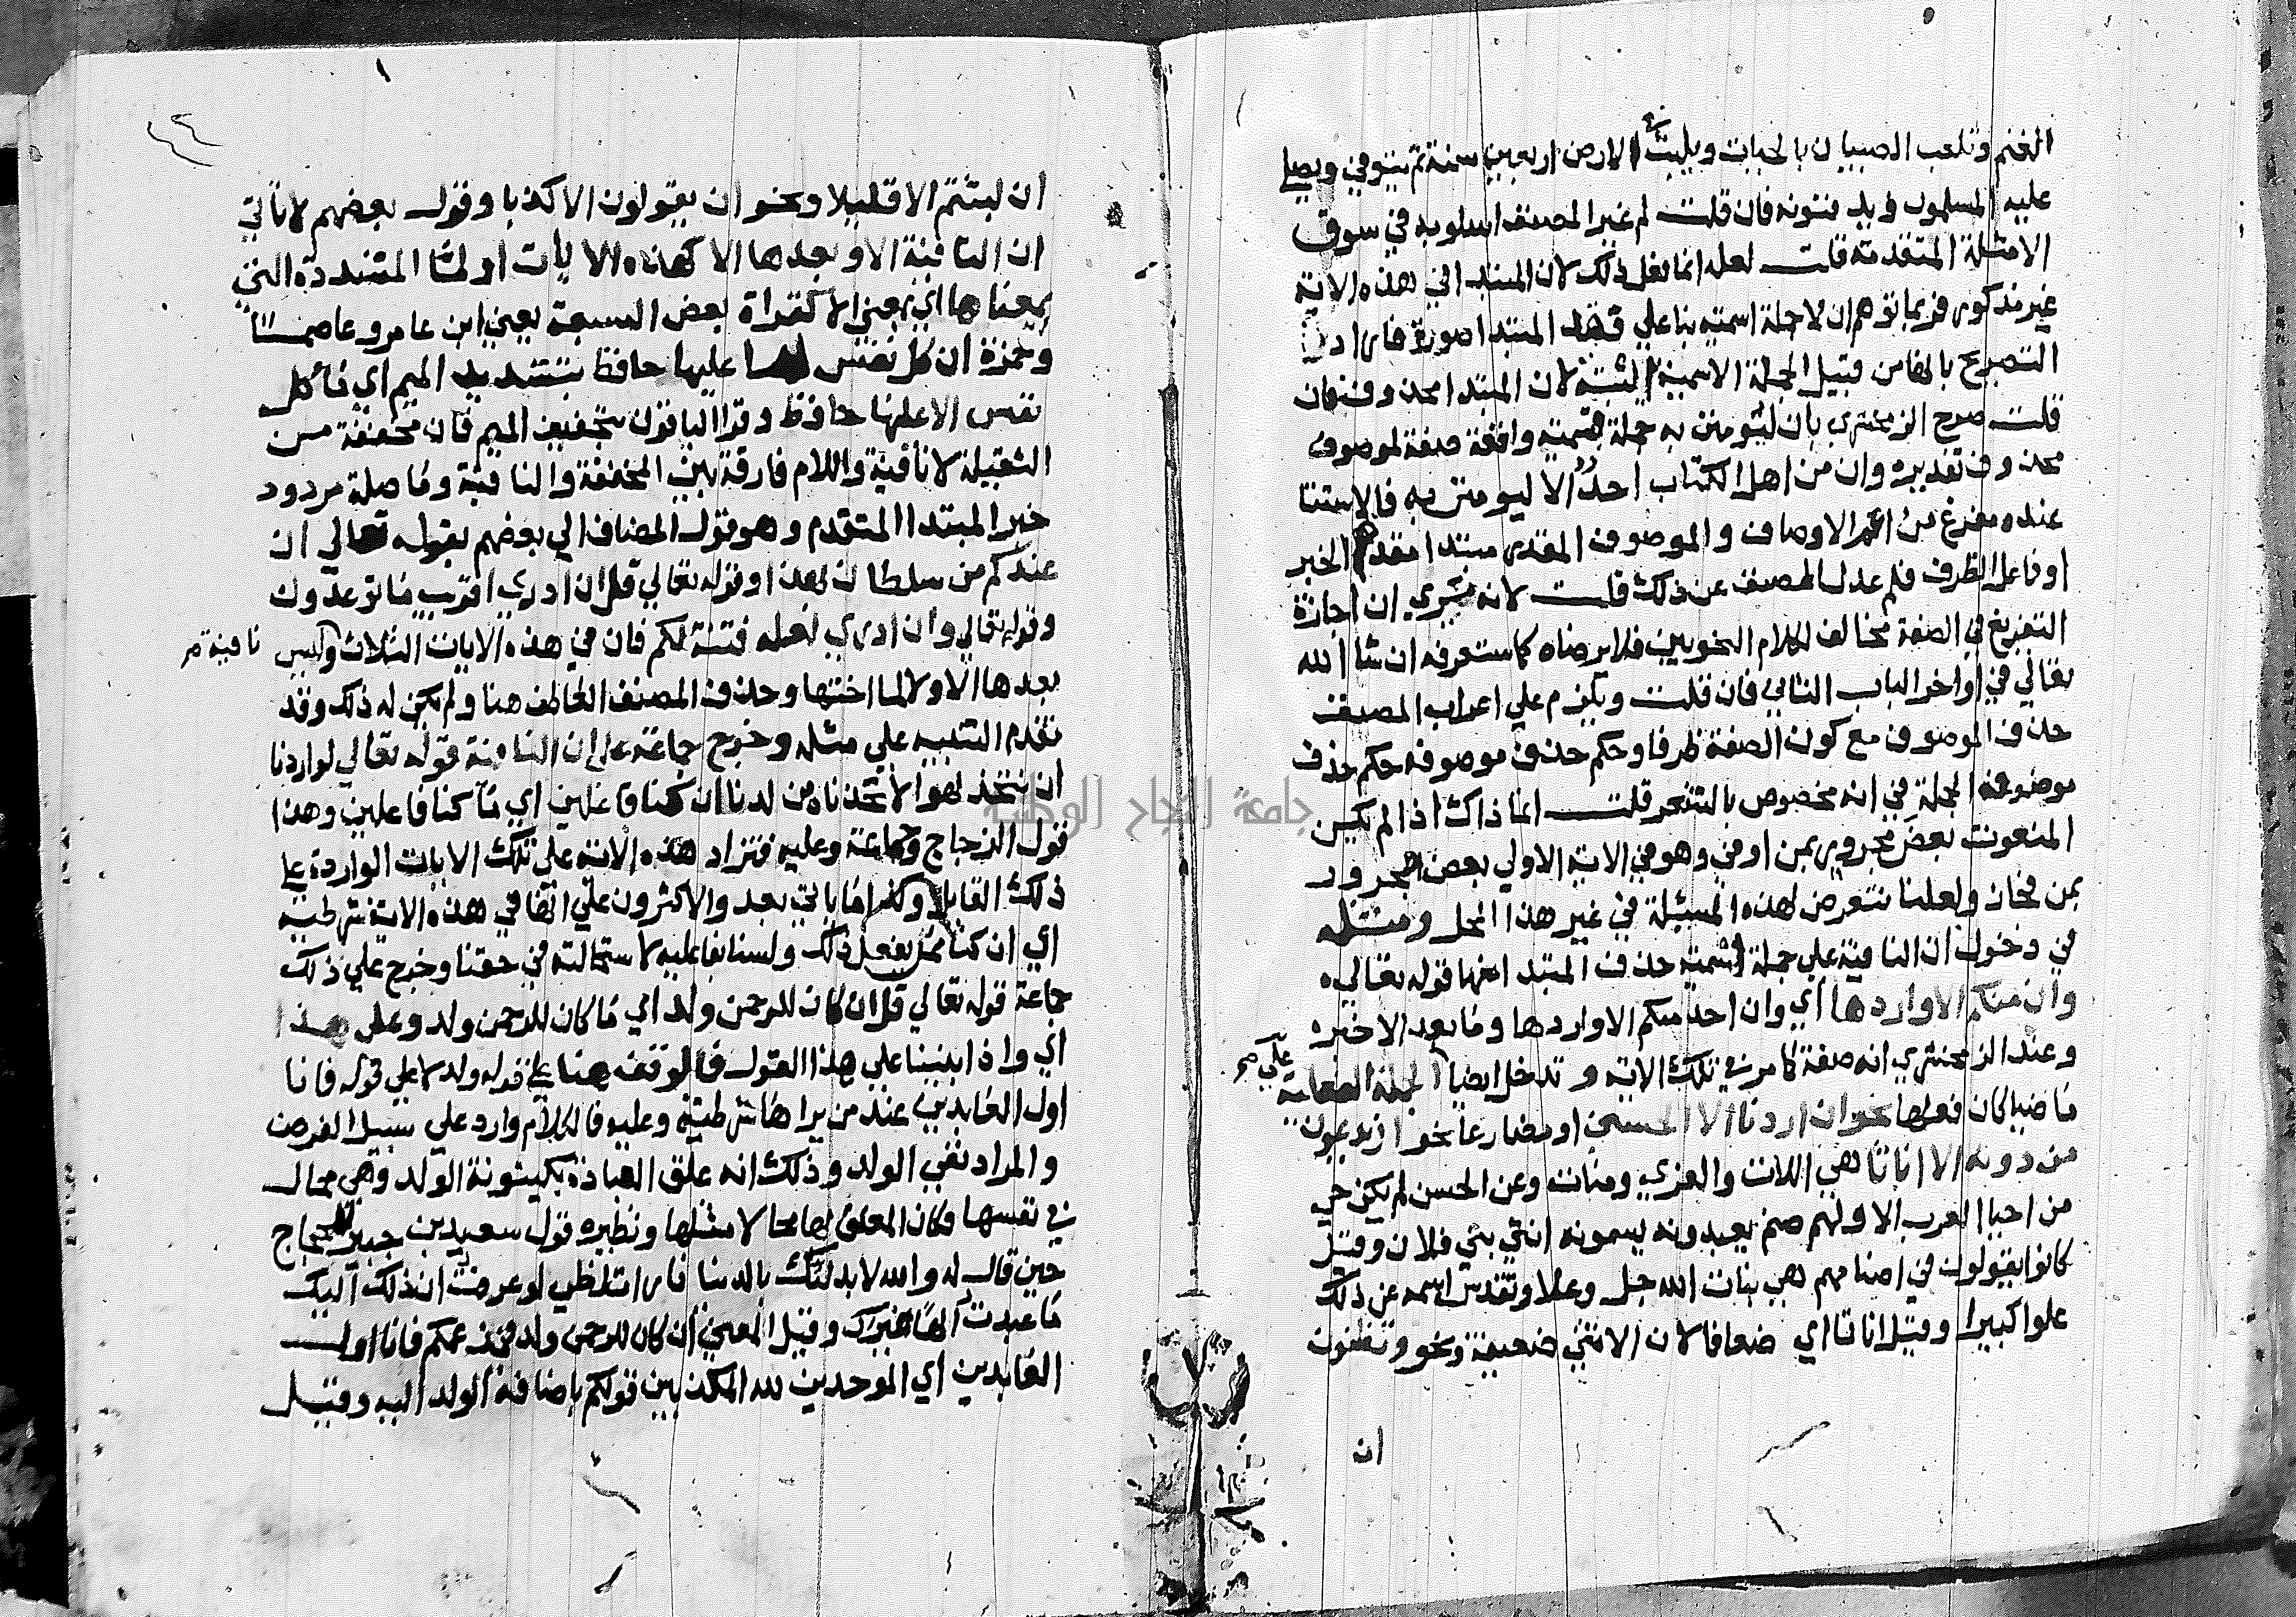 الغنم وتلعب الصبيان بالحيات ويلبث في الارض اربعين سنة ثم يتوفى ويصلي
عليه المسلمون ويدفنونه فان قلت لم غير المصنف اسلوبه في سوق
الامثلة المتقدمة قلت لعله انما فعل ذلك لان المبتدا في هذه الاية
غير مذكور فربما توهم ان لا جملة اسمية بنا على فقد المبتدا صورة فاراد
التصريح بانها من قبيل الجملة الاسمية البتة لان المبتدا محذوف فان
قلت صرح الزمخشري بان ليؤمنن به جملة قسمية واقعة صفة لموصوف
محذوف تقديره وان من اهل الكتاب احد الا ليومنن به فالاستثنا
عنده مفرغ من اعم الاوصاف والموصوف المقدر مبتدا مقدم الخبر
او فاعل الظرف فلم عدل المصنف عن ذلك قلت لانه يري ان اجازة
التفريغ في الصفة مخالف لكلام النحويين فلا يرضاه كما ستعرفه ان شا الله
تعالي في اواخر الباب الثاني فان قلت ويلزم علي اعراب المصنف
حذف الموصوف مع كون الصفة ظرفا وحكم حذف موصوفه حكم حذف
موصوف الجملة في انه مخصوص بالشعر قلت انما ذاك اذا لم يكن
المنعوت بعض مجرور بمن او في وهو في الاية الاولي بعض المجرور
بمن فجاز ولعلنا نتعرض لهذه المسئلة في غير هذا المحل ومثله
في دخول ان النافية علي جملة اسمية حذف المبتدا منها قوله تعالي
وان منكم الا واردها اي وان احد منكم الا واردها وما بعد الا خبر
وعند الزمخشري انه صفة كما مر في تلك الاية وتدخل ايضا علي الجملة الفعلية
ماضيا كان فعلها نحو ان اردنا الا الحسنى او مضارعا نحو ان يدعون
من دونه الا اناثا هي اللات والعزي ومنات وعن الحسن لم يكن حي
من احيا العرب الا ولهم صنم يعبدونه يسمونه انثي بني فلان وقيل
كانوا يقولون في اصنامهم هي بنات الله جل وعلا وتقدس اسمه عن ذلك
علوا كبيرا وقيل اناثا اي ضعافا لان الانثي ضعيفة ونحو وتظنون
ان
ان لبثتم الا قليلا ونحو ان يقولون الا كذبا وقول بعضهم لا تاتي
ان النافية الا وبعدها الا كهذه الايات او لما المشددة التي
بمعناها اي بمعني الا كقراة بعض السبعة يعني ابن عامر وعاصما
وحمزة ان كل نفس لما عليها حافظ بتشديد الميم اي ما كل
نفس الا عليها حافظ وقرا الباقون بتخفيف الميم فان مخففة من
الثقيلة لا نافية واللام فارقة بين المخففة والنافية وما صلة مردود
خبر المبتدا المتقدم وهو قول المضاف الي بعضهم بقوله تعالي ان
عندكم من سلطان بهذا وقوله تعالي قل ان ادري اقريب ما توعدون
وقوله تعالي وان ادري لعله فتنة لكم فان في هذه الايات الثلاث نافية وليس
بعدها الا ولا لما اختها وحذف المصنف العاطف هنا ولم يكن له ذلك وقد
تقدم التنبيه علي مثله وخرج جماعة علي ان النافية قوله تعالي لو اردنا
ان نتخذ لهوا لاتخذناه من لدنا ان كنا فاعلين اي ما كنا فاعلين وهذا
قول الزجاج وجماعة وعليه فتزاد هذه الاية علي تلك الايات الواردة علي
ذلك القايل وكذا ما ياتي بعد والاكثرون علي انها في هذه الاية شرطية
اي ان كنا ممن يفعل ذلك ولسنا بفاعليه لاستحالته في حقنا وخرج علي ذلك
جماعة قوله تعالي قل ان كان للرحمن ولد اي ما كان للرحمن ولد وعلي هذا
اي واذا بنينا علي هذا القول فالوقف هنا علي قوله ولد لا علي قوله فانا
اول العابدين عند من يراها شرطية وعليه فالكلام وارد علي سبيل الفرض
والمراد نفي الولد وذلك انه علق العبادة بكينونة الولد وهي محال
في نفسها فكان المعلق بها محالا مثلها ونظيره قول سعيد بن جبير للحجاج
حين قال له والله لابدلنك بالدنيا نارا تلظي لو عرفت ان ذلك اليك
ما عبدت الها غيرك وقيل المعني ان كان للرحمن ولد في زعمكم فانا اول
العابدين اي الموحدين لله المكذبين قولكم باضافة الولد اليه وقيل
جامعة النجاح الوطنية